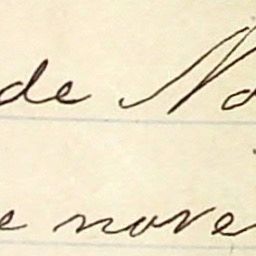 de No
e nove